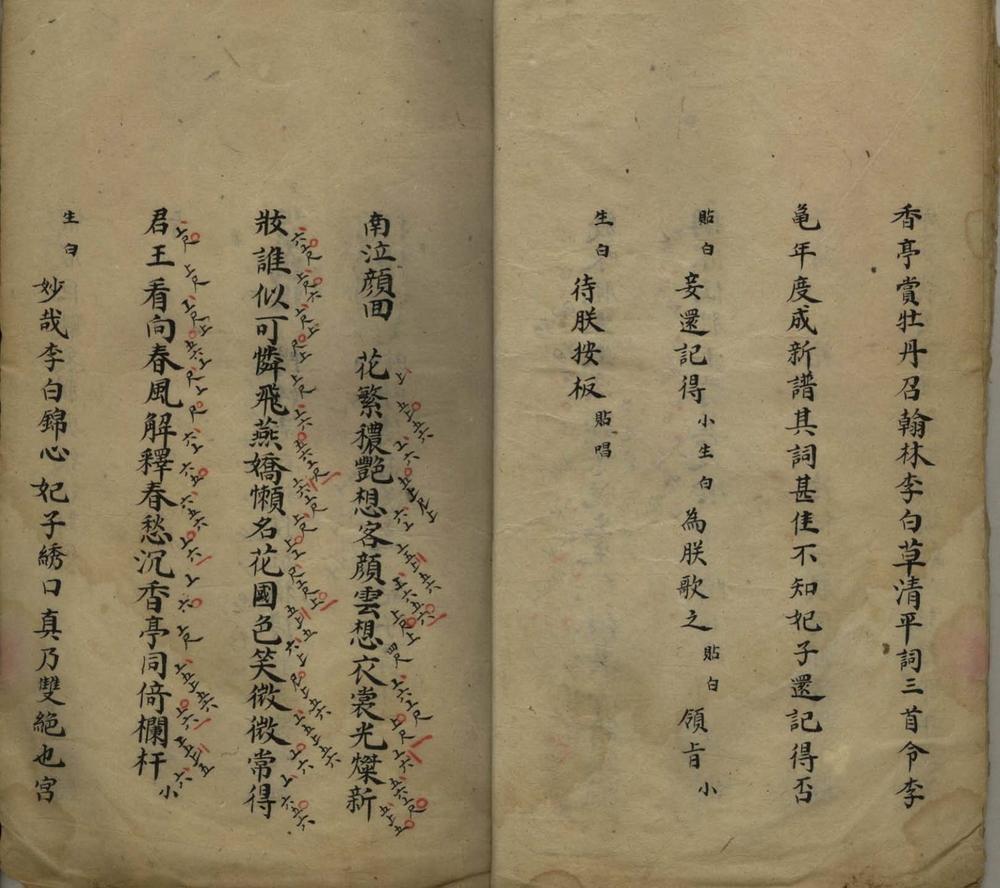 香亭賞牡丹召翰林李白草清平詞三首令李
亀年度成新譜其詞甚佳不知妃子還記得否
貼白 妾還記得 小生白 為朕歌之 貼白 領旨 小
生白 待朕按板 貼唱
南泣顔回 花繁穠艷想客顔雲想衣裳光燦新
妝誰似可憐飛燕嬌懶名花國色笑微微常得
君王看向春風解釋春愁沉香亭同倚欄杆 小
生白 妙哉李白錦心妃子綉口真乃雙絕也宮